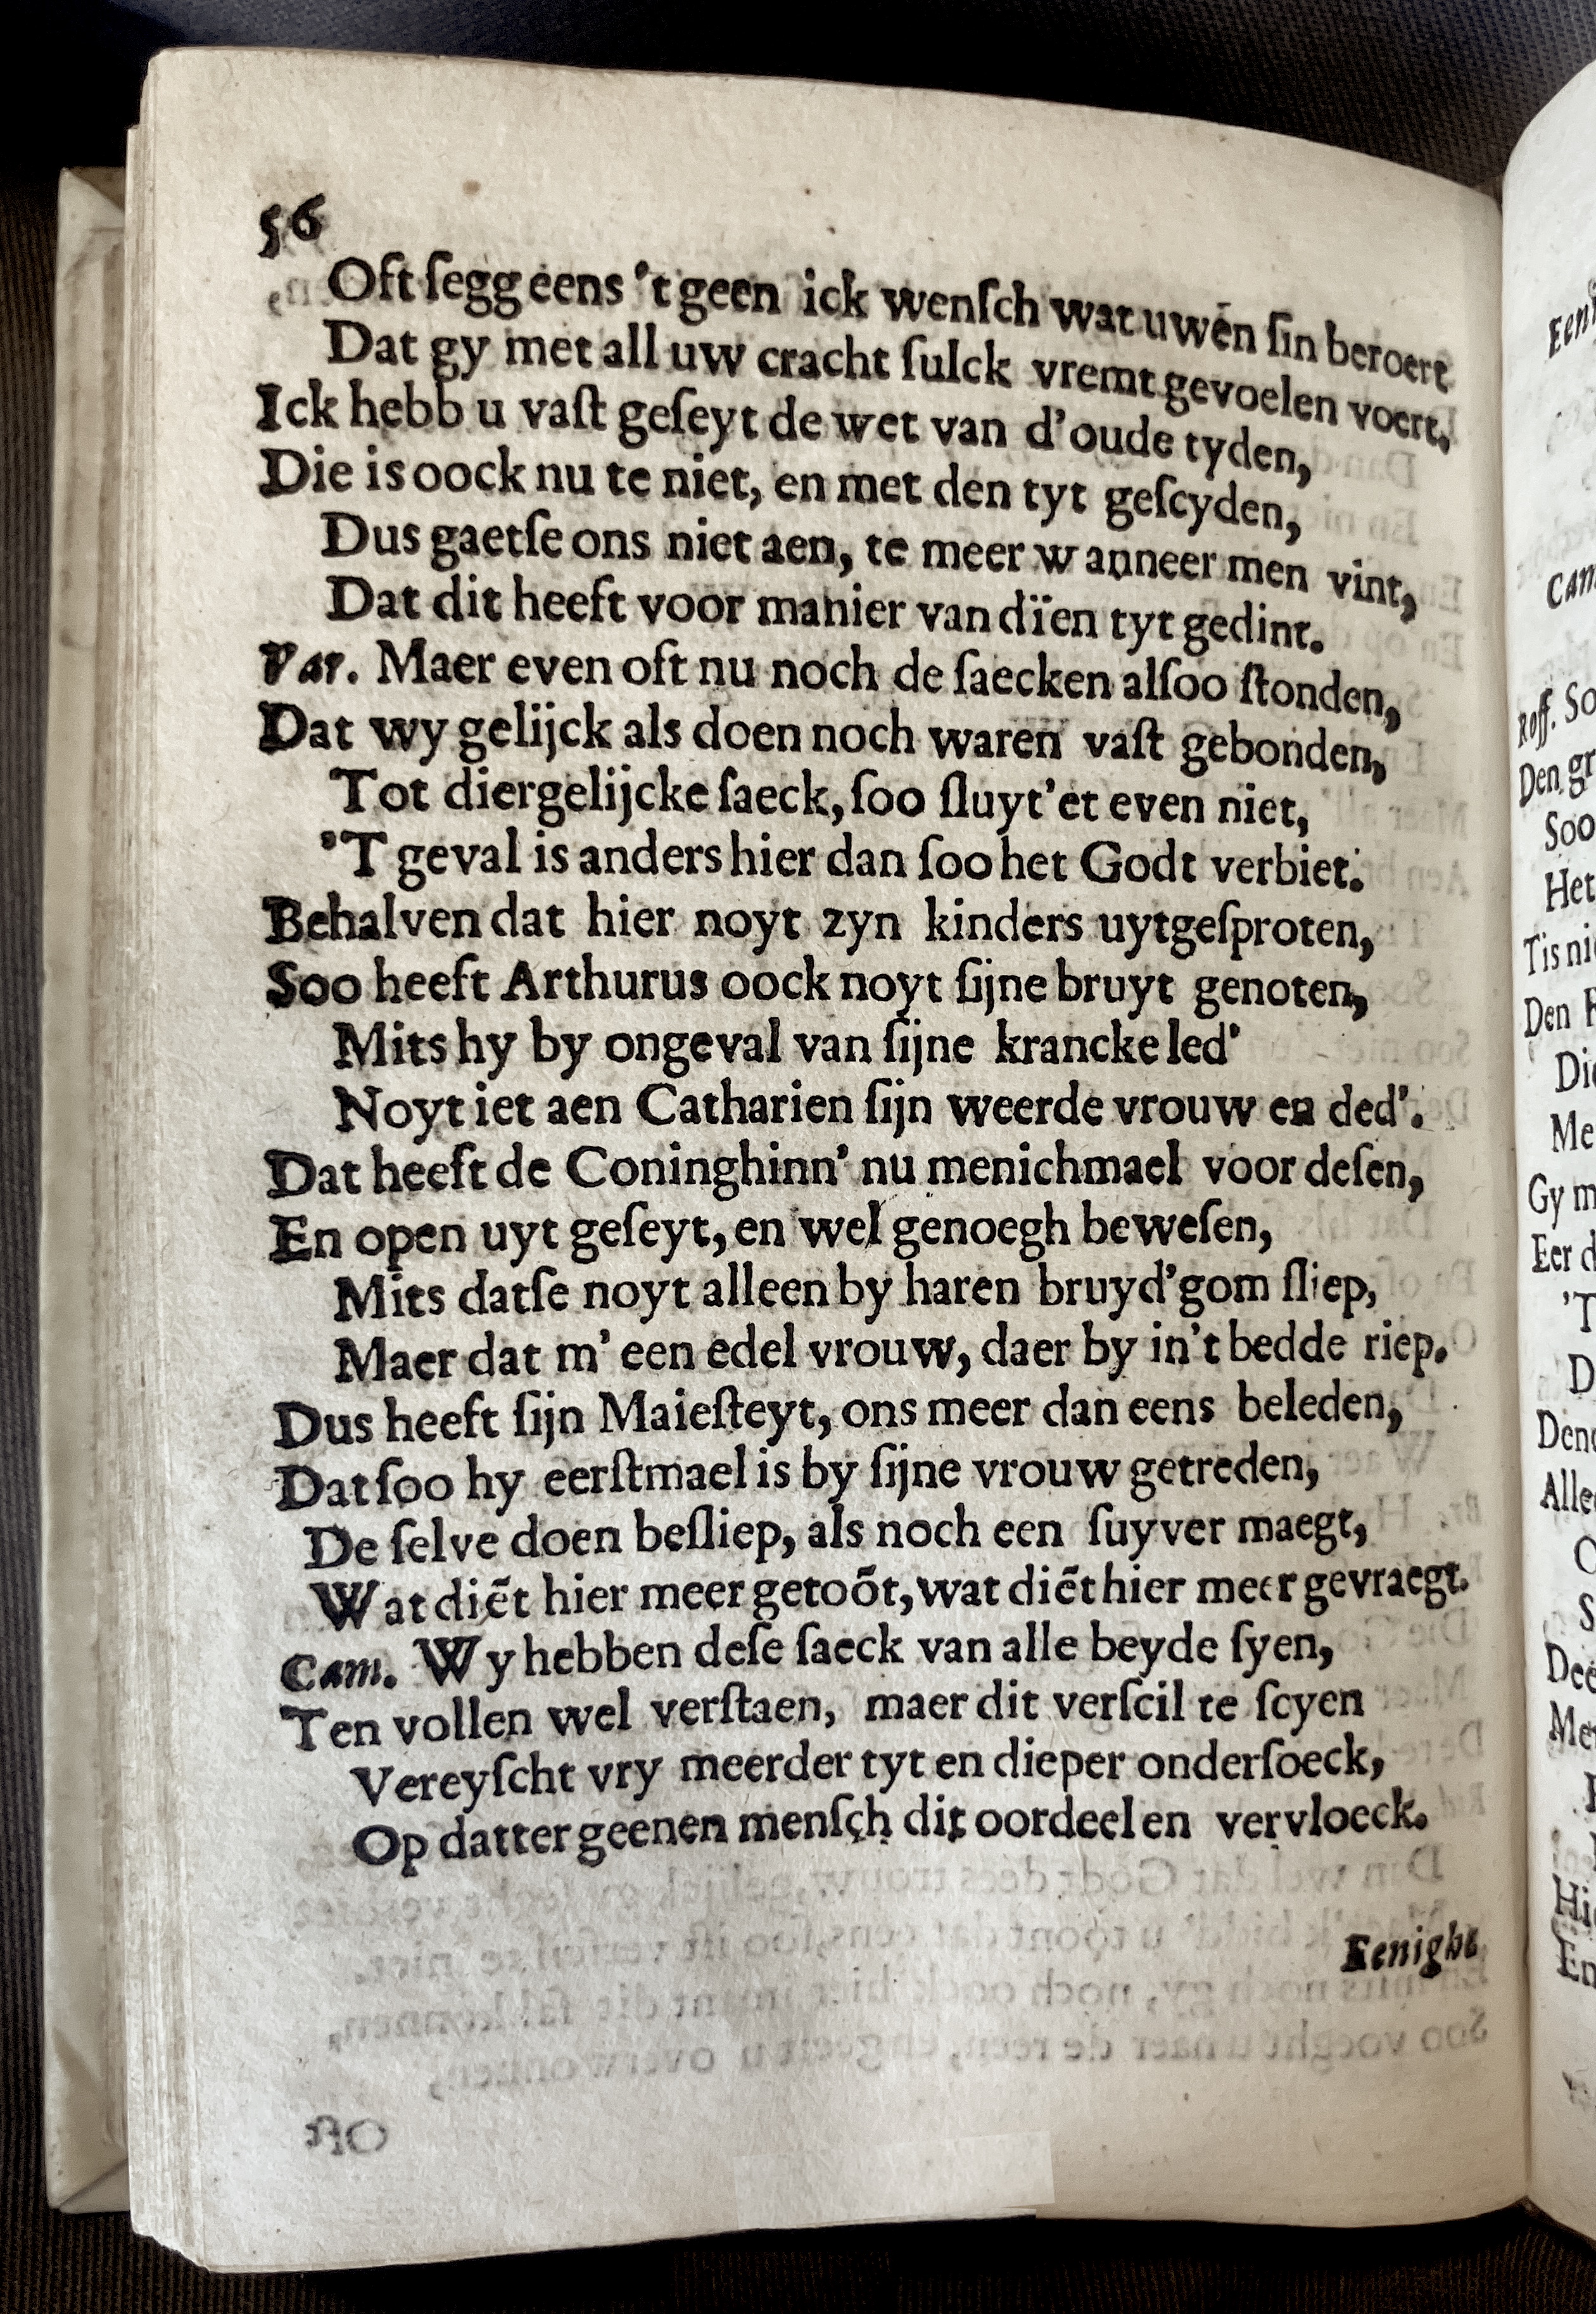 56
Oft ſegg eens 't geen ick wenſch wat uwen ſin beroert
Dat gy met all uw cracht ſulck vremt gevoelen voert,
Ick hebb u vaſt geſeyt de wet van d'oude tyden,
Die is oock nu te niet, en met den tyt geſcyden,
Dus gaetſe ons niet aen, te meer wanneer men vint,
Dat dit heeft voor manier van dïen tyt gedint.
Var. Maer even oft nu noch de ſaecken alſoo ſtonden,
Dat wy gelijck als doen noch waren vaſt gebonden,
Tot diergelijcke ſaeck, ſoo ſluyt'et even niet,
'T geval is anders hier dan ſoo het Godt verbiet.
Behalven dat hier noyt zyn kinders uytgeſproten,
Soo heeft Arthurus oock noyt ſijne bruyt genoten,
Mits hy by ongeval van ſijne krancke led'
Noyt iet aen Catharien ſijn weerde vrouw en ded'.
Dat heeft de Coninghinn' nu menichmael voor deſen,
En open uyt geſeyt, en wel genoegh beweſen,
Mits datſe noyt alleen by haren bruyd'gom ſliep,
Maer dat m' een edel vrouw, daer by in't bedde riep.
Dus heeft ſijn Maieſteyt, ons meer dan eens beleden,
Dat ſoo hy eerſtmael is by ſijne vrouw getreden,
De ſelve doen beſliep, als noch een ſuyver maegt,
Wat diẽt hier meer getoõt, wat diẽt hier meer gevraegt.
Cam. Wy hebben deſe ſaeck van alle beyde ſyen,
Ten vollen wel verſtaen, maer dit verſcil te ſcyen
Vereyſcht vry meerder tyt en dieper onderſoeck,
Op datter geenen menſch dit oordeelen vervloeck.
Eenighe